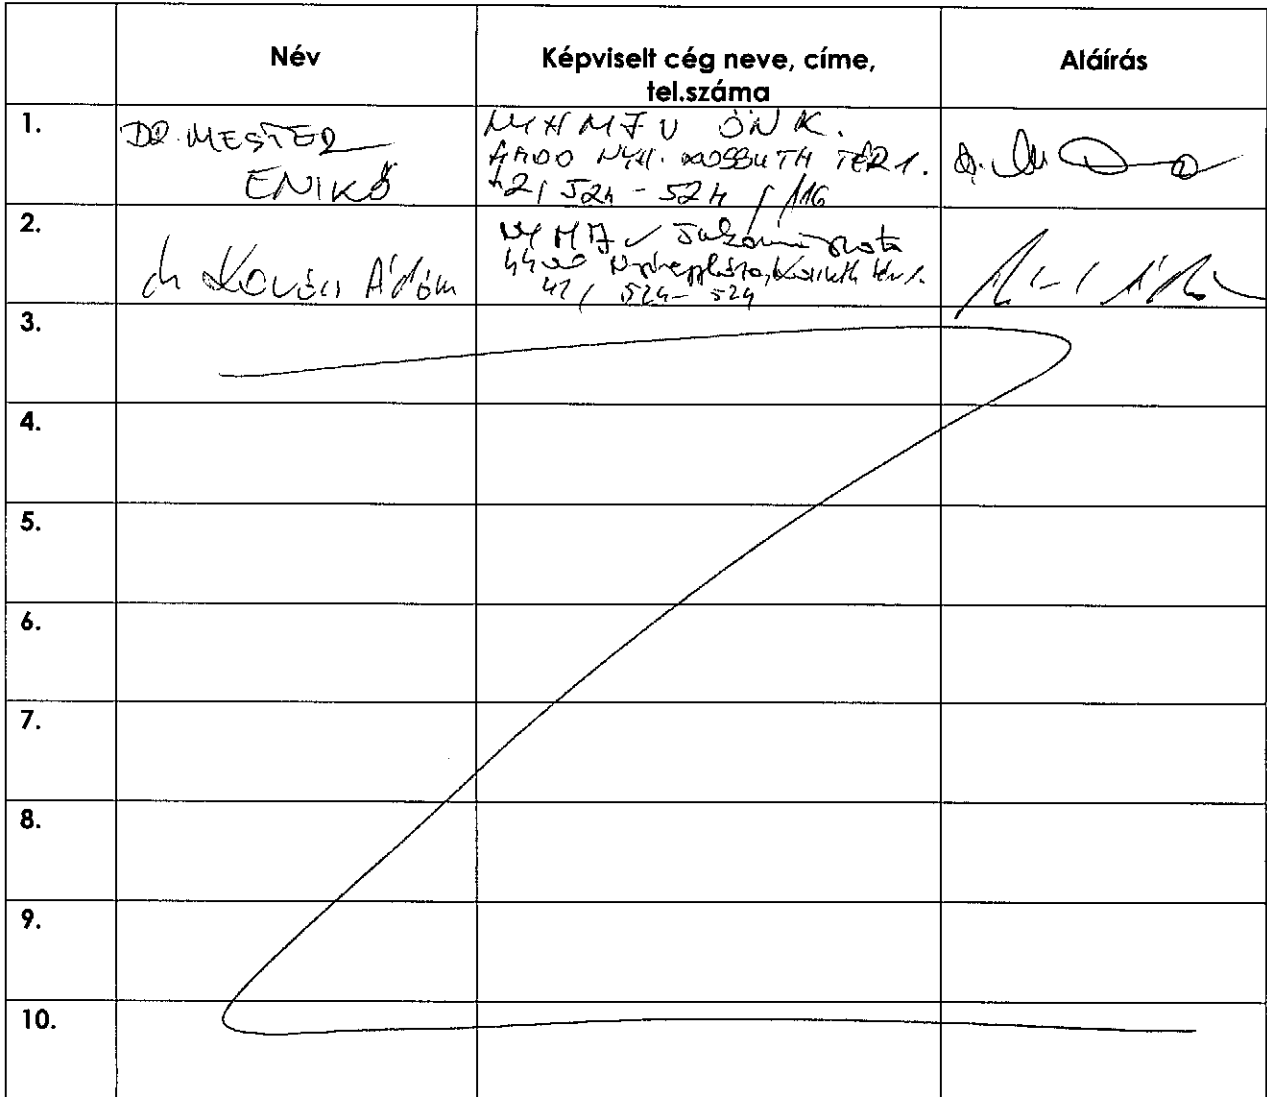 Név Képviselt cég neve, címe, Aláírás
tel.száma
1. DR. MESTER NYH MJV ÖNK.
ENIKŐ 4400 NYH. KOSSUTH TÉR 1.
42/524-524/116
2. dr Kovács Ádám NYMJV
4400 Nyíregyháza, Kossuth tér 1.
42/524-524
3.
4.
5.
6.
7.
8.
9.
10.